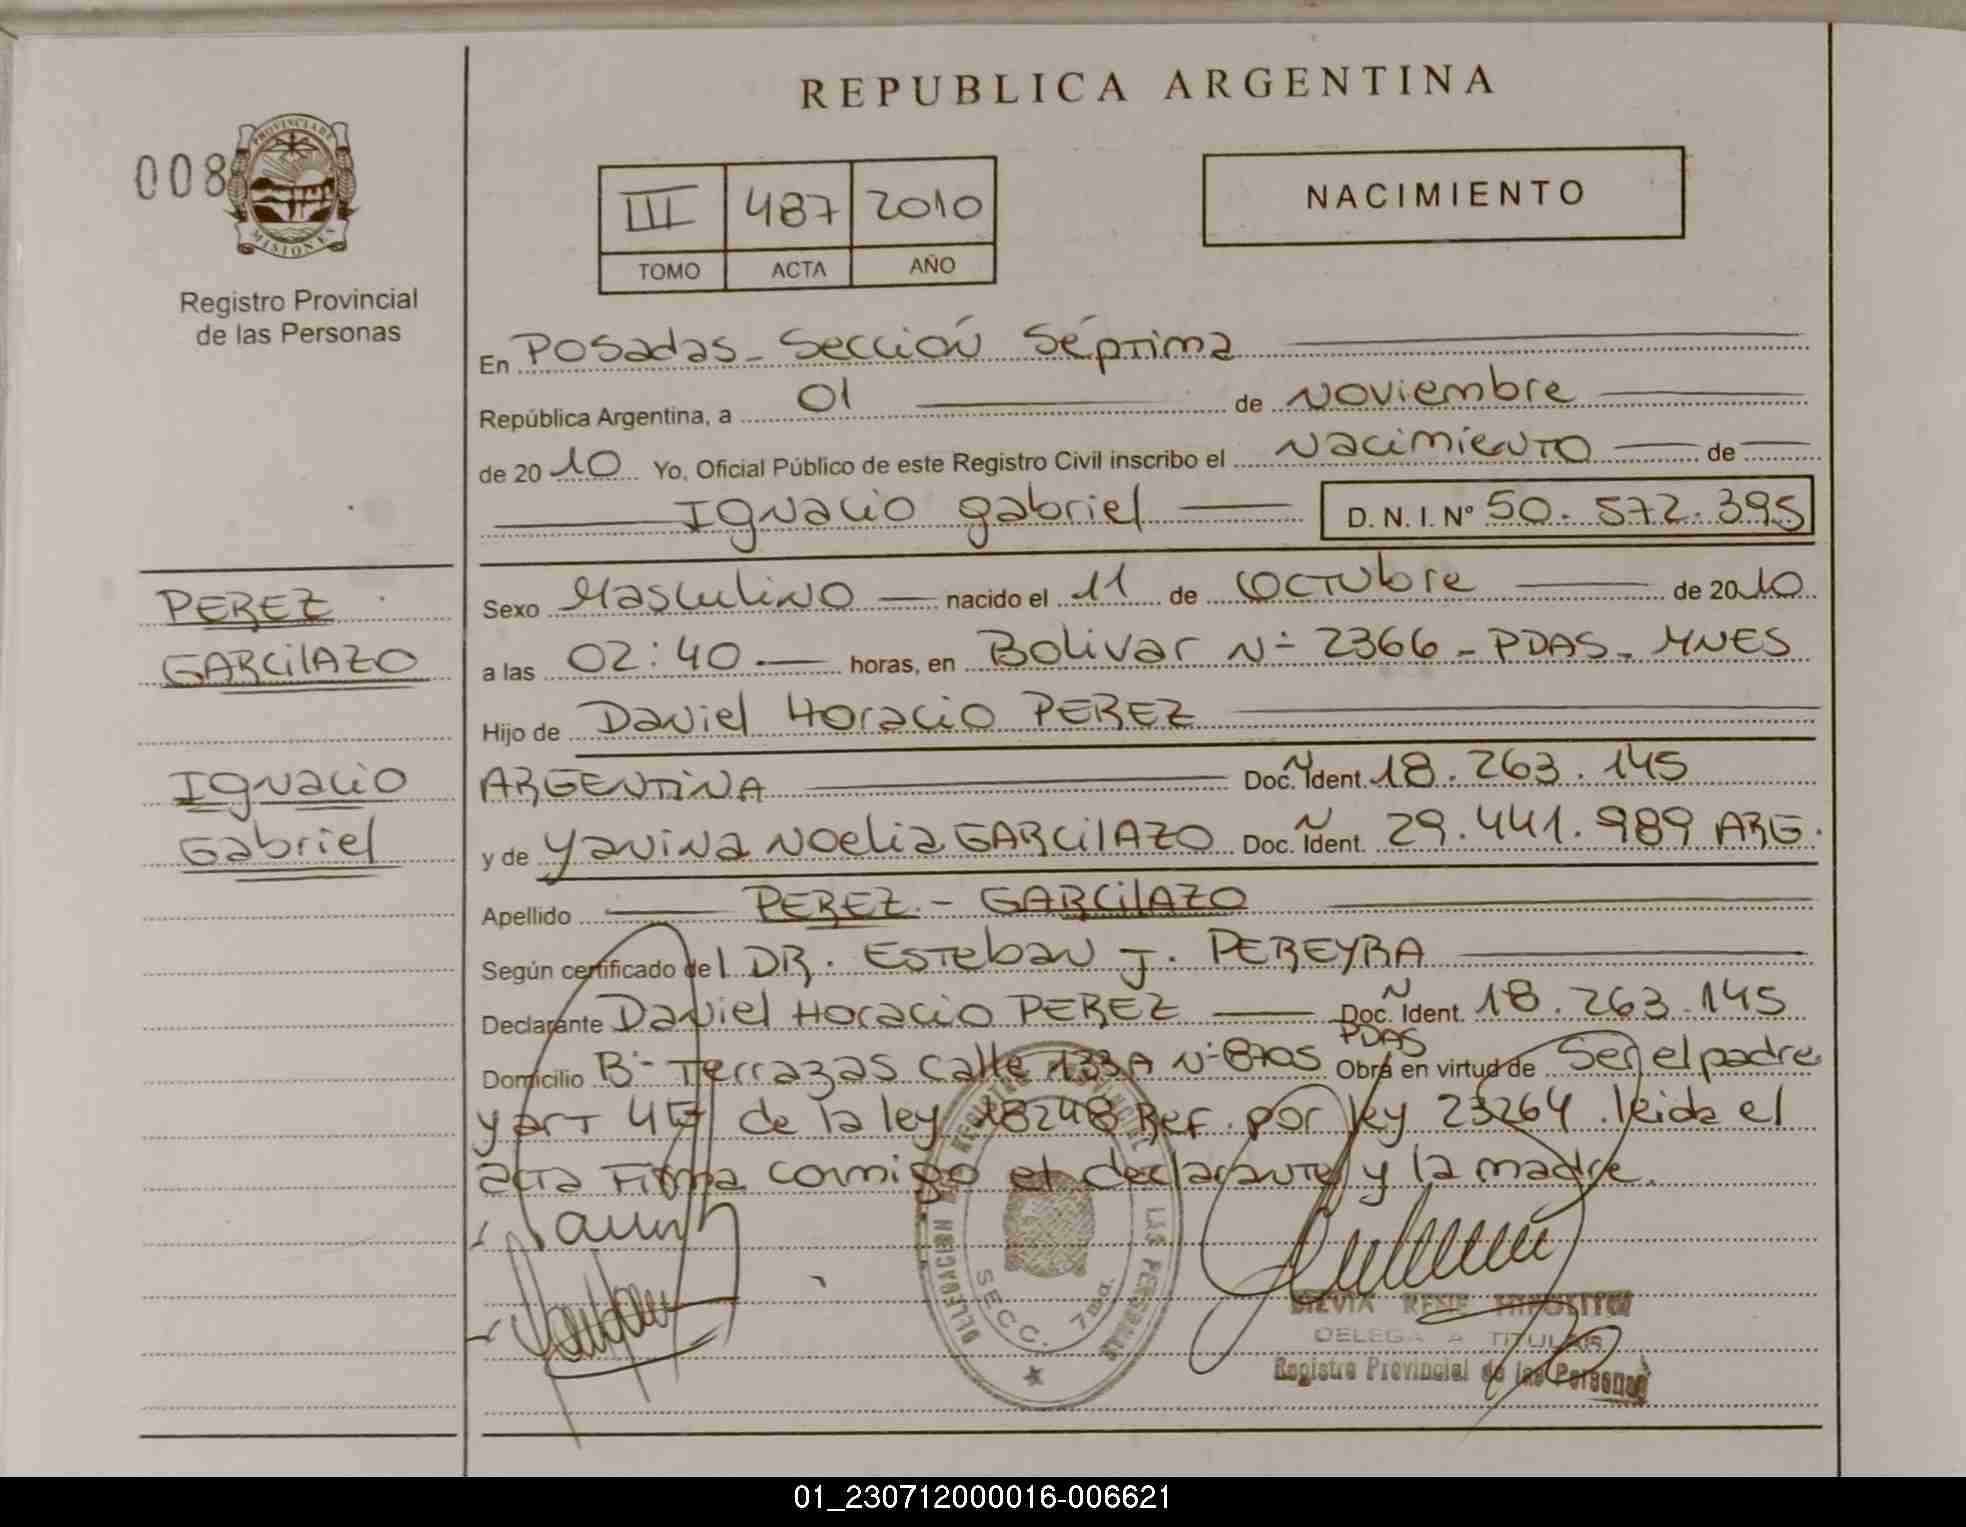 REPUBLICA ARGENTINA
008
PROVINCIA DE
MISIONES
Registro Provincial
de las Personas
III 487 2010
TOMO ACTA AÑO
NACIMIENTO
En Posadas - Sección Séptima
República Argentina, a 01 de Noviembre
de 20 10 Yo, Oficial Público de este Registro Civil inscribo el Nacimiento de
Ignacio gabriel D. N. I. Nº 50.572.395
PEREZ
GARCILAZO
Ignacio
Gabriel
Sexo Masculino nacido el 11 de OCTUbre de 2010
a las 02:40 horas, en Bolivar Nº 2366 - PDAS - MNES
Hijo de Daniel Horacio PEREZ
ARGENTINA Doc. Ident. 18.263.145
y de Yanina Noelia GARCILAZO Doc. Ident. 29.441.989 ARG.
Apellido PEREZ - GARCILAZO
Según certificado del DR. Esteban J. PEREYRA
Declarante Daniel Horacio PEREZ Doc. Ident. 18.263.145
PDAS
Domicilio Bº Terrazas Calle 133A Nº 8705 Obra en virtud de Ser el padre
y art 4º de la ley 18248 Ref. por ley 23264. leida el
acta Firma conmigo el declarante y la madre.
DELEGACION REGISTRO PROVINCIAL DE LAS PERSONAS
SECC. 7ma.
SILVIA RENE HIPOLITO
DELEGADA TITULAR
Registro Provincial de las Personas
01_230712000016-006621